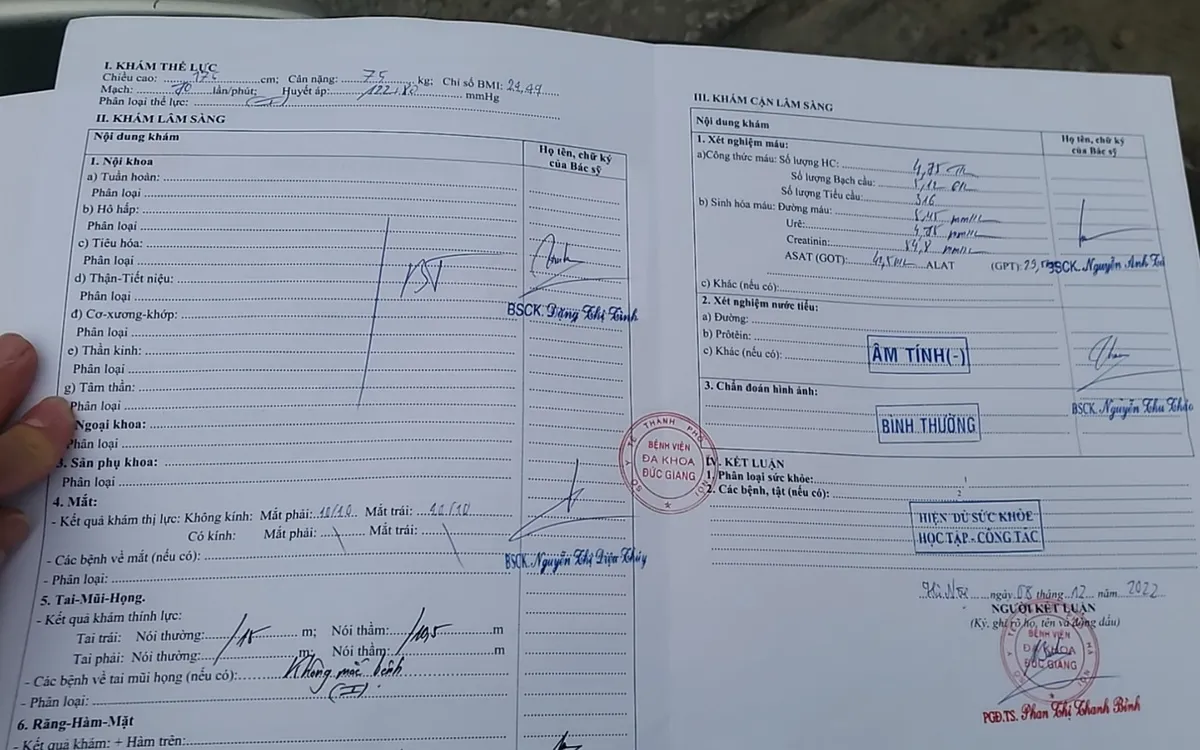 I. KHÁM THỂ LỰC
Chiều cao: 175 cm; Cân nặng: 75 kg; Chỉ số BMI: 24,49
Mạch: 70 lần/phút; Huyết áp: 122/80 mmHg
Phân loại thể lực: (I)
II. KHÁM LÂM SÀNG
Nội dung khám
Họ tên, chữ ký của Bác sỹ
1. Nội khoa
a) Tuần hoàn:
Phân loại
b) Hô hấp:
Phân loại
c) Tiêu hóa:
Phân loại
d) Thận-Tiết niệu:
Phân loại
BT
BSCK. Đặng Thị Tình
đ) Cơ-xương-khớp:
Phân loại
e) Thần kinh:
Phân loại
g) Tâm thần:
Phân loại
Ngoại khoa:
Phân loại
3. Sản phụ khoa:
Phân loại
4. Mắt:
- Kết quả khám thị lực: Không kính: Mắt phải: 10/10 Mắt trái: 10/10
Có kính: Mắt phải: \ Mắt trái: \
- Các bệnh về mắt (nếu có):
BSCK. Nguyễn Thị Diệu Thúy
- Phân loại:
5. Tai-Mũi-Họng.
- Kết quả khám thính lực:
Tai trái: Nói thường: m; Nói thầm: m
Tai phải: Nói thường: m; Nói thầm: m
- Các bệnh về tai mũi họng (nếu có): Không mắc bệnh
- Phân loại: (I)
6. Răng-Hàm-Mặt
- Kết quả khám: + Hàm trên:
III. KHÁM CẬN LÂM SÀNG
Nội dung khám
Họ tên, chữ ký của Bác sỹ
1. Xét nghiệm máu:
a)Công thức máu: Số lượng HC: 4,75
Số lượng Bạch cầu: 5,12
Số lượng Tiểu cầu: 316
b) Sinh hóa máu: Đường máu: 5,45 mm/L
Urê: 4,78 mm/L
Creatinin: 84,8 mm/L
ASAT (GOT): ALAT (GPT):
BSCK. Nguyễn Anh Tú
c) Khác (nếu có):
2. Xét nghiệm nước tiểu:
a) Đường:
b) Prôtêin:
c) Khác (nếu có):
ÂM TÍNH(-)
3. Chẩn đoán hình ảnh:
BSCK. Nguyễn Thu Thảo
BÌNH THƯỜNG
SỞ Y TẾ THÀNH PHỐ HÀ NỘI
BỆNH VIỆN
ĐA KHOA
ĐỨC GIANG
IV. KẾT LUẬN
1. Phân loại sức khỏe:
2. Các bệnh, tật (nếu có):
HIỆN ĐỦ SỨC KHỎE
HỌC TẬP - CÔNG TÁC
Hà Nội ngày 08 tháng 12 năm 2022
NGƯỜI KẾT LUẬN
(Ký, ghi rõ họ, tên và đóng dấu)
BỆNH VIỆN
ĐA KHOA
ĐỨC GIANG
PGĐ.TS. Phan Thị Thanh Bình